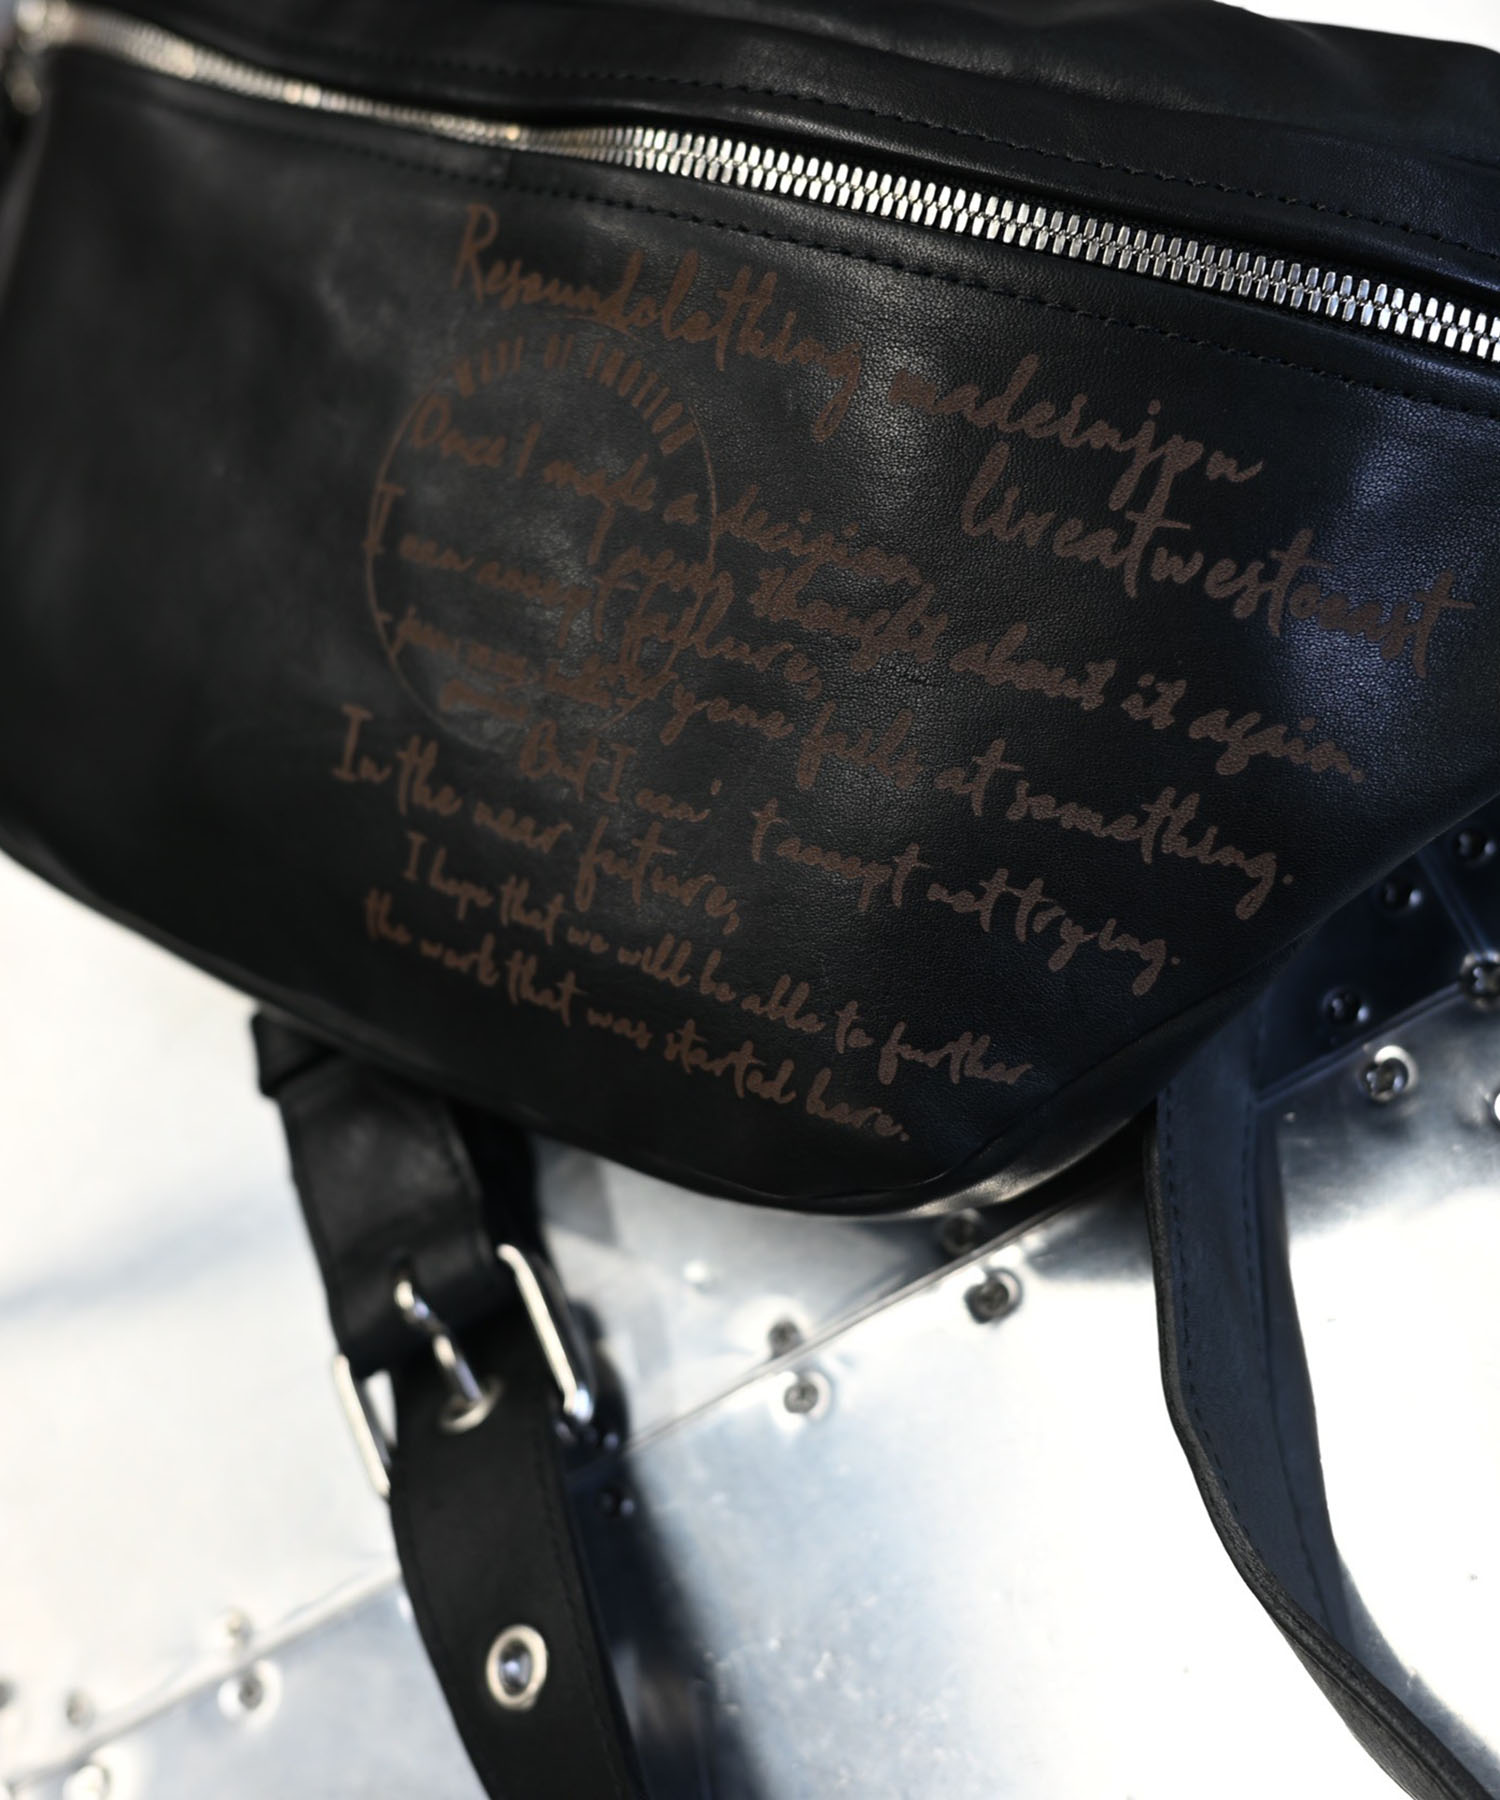 Resoundclothing modernjpn
liveatwestcoast
MADE OF EMOTION
Once I made a decision,
I never thought about it again.
I can accept failure,
yone fails at something.
But I can't accept not trying.
In the near future,
I hope that we will be able to further
the work that was started here.